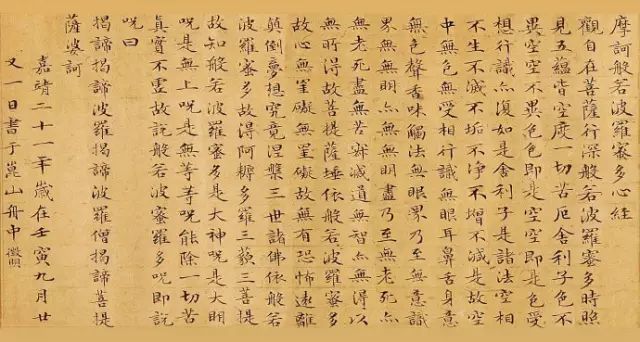 摩訶般若波羅蜜多心經
觀自在菩薩行深般若波羅蜜多時照
見五蘊皆空度一切苦厄舍利子色不
異空空不異色色即是空空即是色受
想行識亦復如是舍利子是諸法空相
不生不滅不垢不淨不增不減是故空
中無色無受相行識無眼耳鼻舌身意
無色聲香味觸法無眼界乃至無意識
界無無明亦無無明盡乃至無老死亦
無老死盡無苦寂滅道無智亦無得以
無所得故菩提薩埵依般若波羅蜜多
故心無罣礙無罣礙故無有恐怖遠離
顛倒夢想究竟涅槃三世諸佛依般若
波羅蜜多故得阿耨多羅三藐三菩提
故知般若波羅蜜多是大神呪是大明
呪是無上呪是無等等呪能除一切苦
真實不虛故說般若波蜜羅多呪即說
呪曰
揭諦揭諦波羅揭諦波羅僧揭諦菩提
薩婆訶
嘉靖二十一年歲在壬寅九月廿
又一日書于崑山舟中 徵明